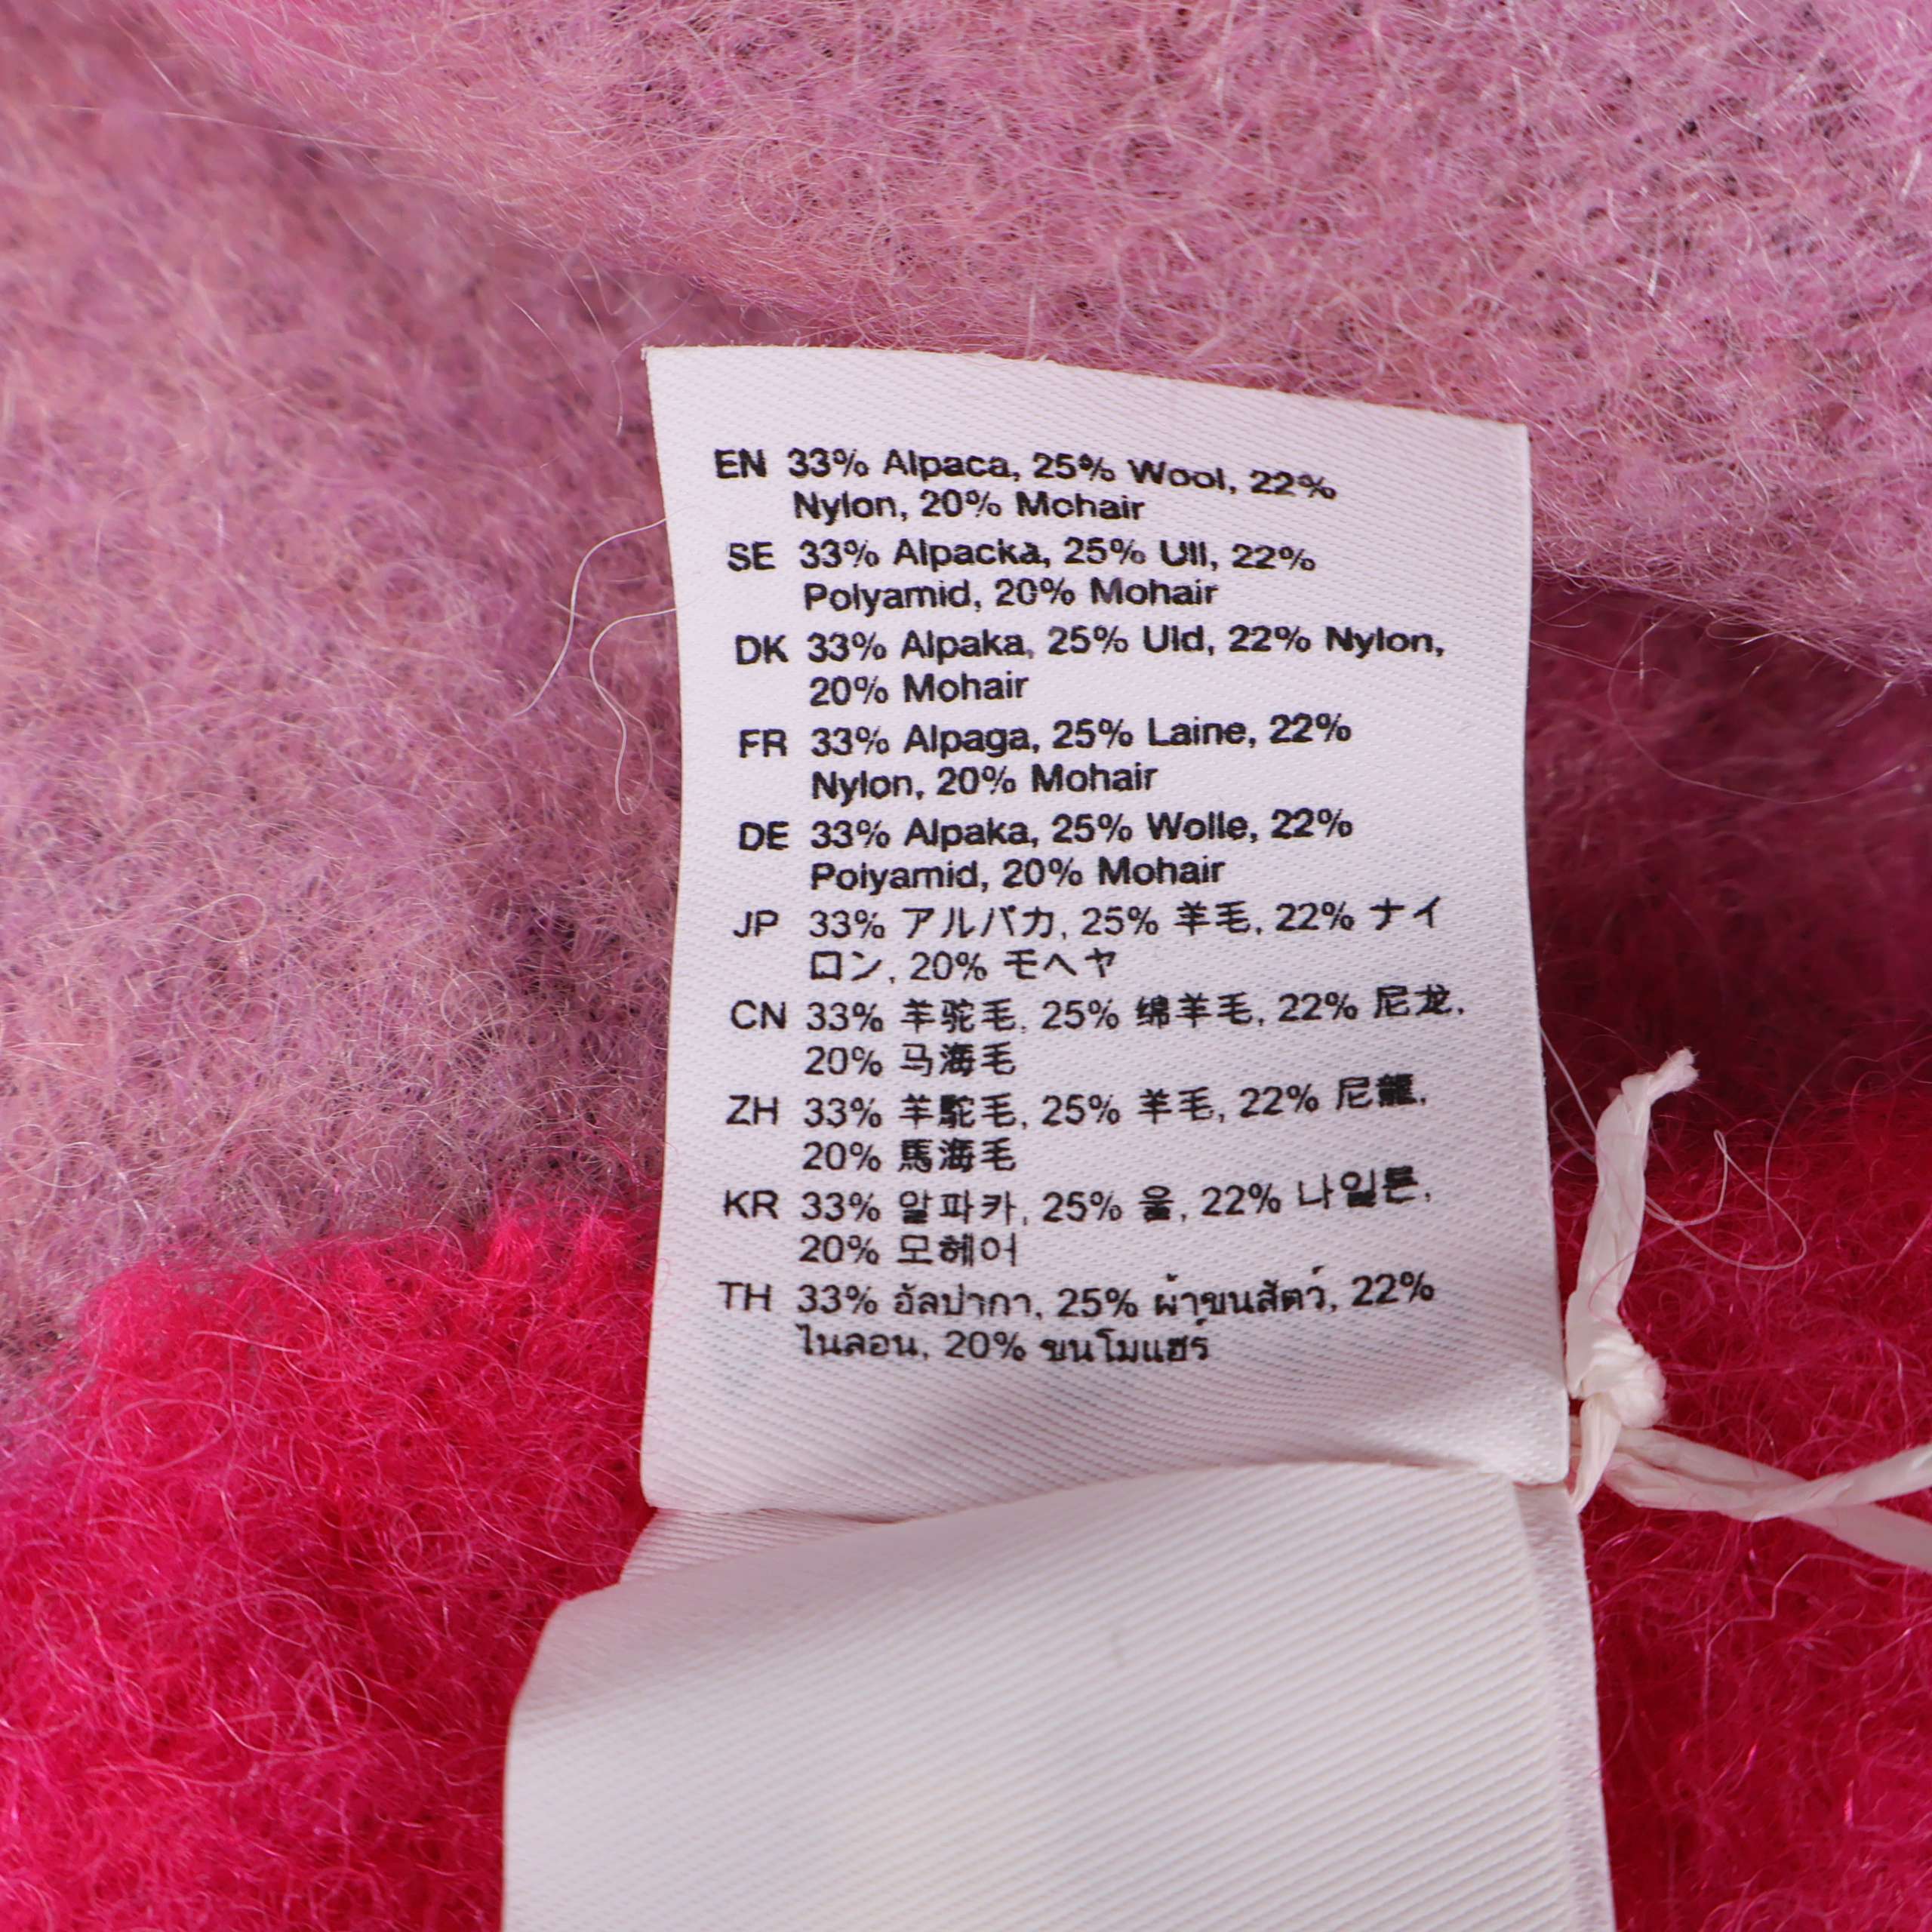 EN 33% Alpaca, 25% Wool, 22%
Nylon, 20% Mohair
SE 33% Alpacka, 25% Ull, 22%
Polyamid, 20% Mohair
DK 33% Alpaka, 25% Uld, 22% Nylon,
20% Mohair
FR 33% Alpaga, 25% Laine, 22%
Nylon, 20% Mohair
DE 33% Alpaka, 25% Wolle, 22%
Polyamid, 20% Mohair
JP 33% アルパカ, 25% 羊毛, 22% ナイ
ロン, 20% モヘヤ
CN 33% 羊驼毛, 25% 绵羊毛, 22% 尼龙,
20% 马海毛
ZH 33% 羊駝毛, 25% 羊毛, 22% 尼龍,
20% 馬海毛
KR 33% 알파카, 25% 울, 22% 나일론,
20% 모헤어
TH 33% อัลปากา, 25% ผ้าขนสัตว์, 22%
ไนลอน, 20% ขนโมแฮร์